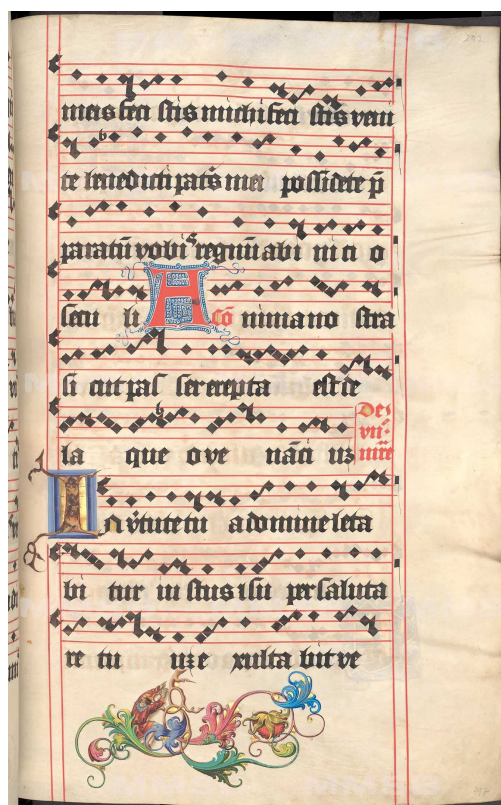 meis feci stis michi feci stis veni
te benedicti patris mei possidete p̄
paratū vobis regnū ab i ni ci o
secu li A cō nima no stra
si cut pas ser erepta est de
la que o ve nāci uz
De
vn̄
mr̄e
In v̄tute tu a domine leta
bi tur iu stus & su per saluta
re tu uz e xulta bit ve